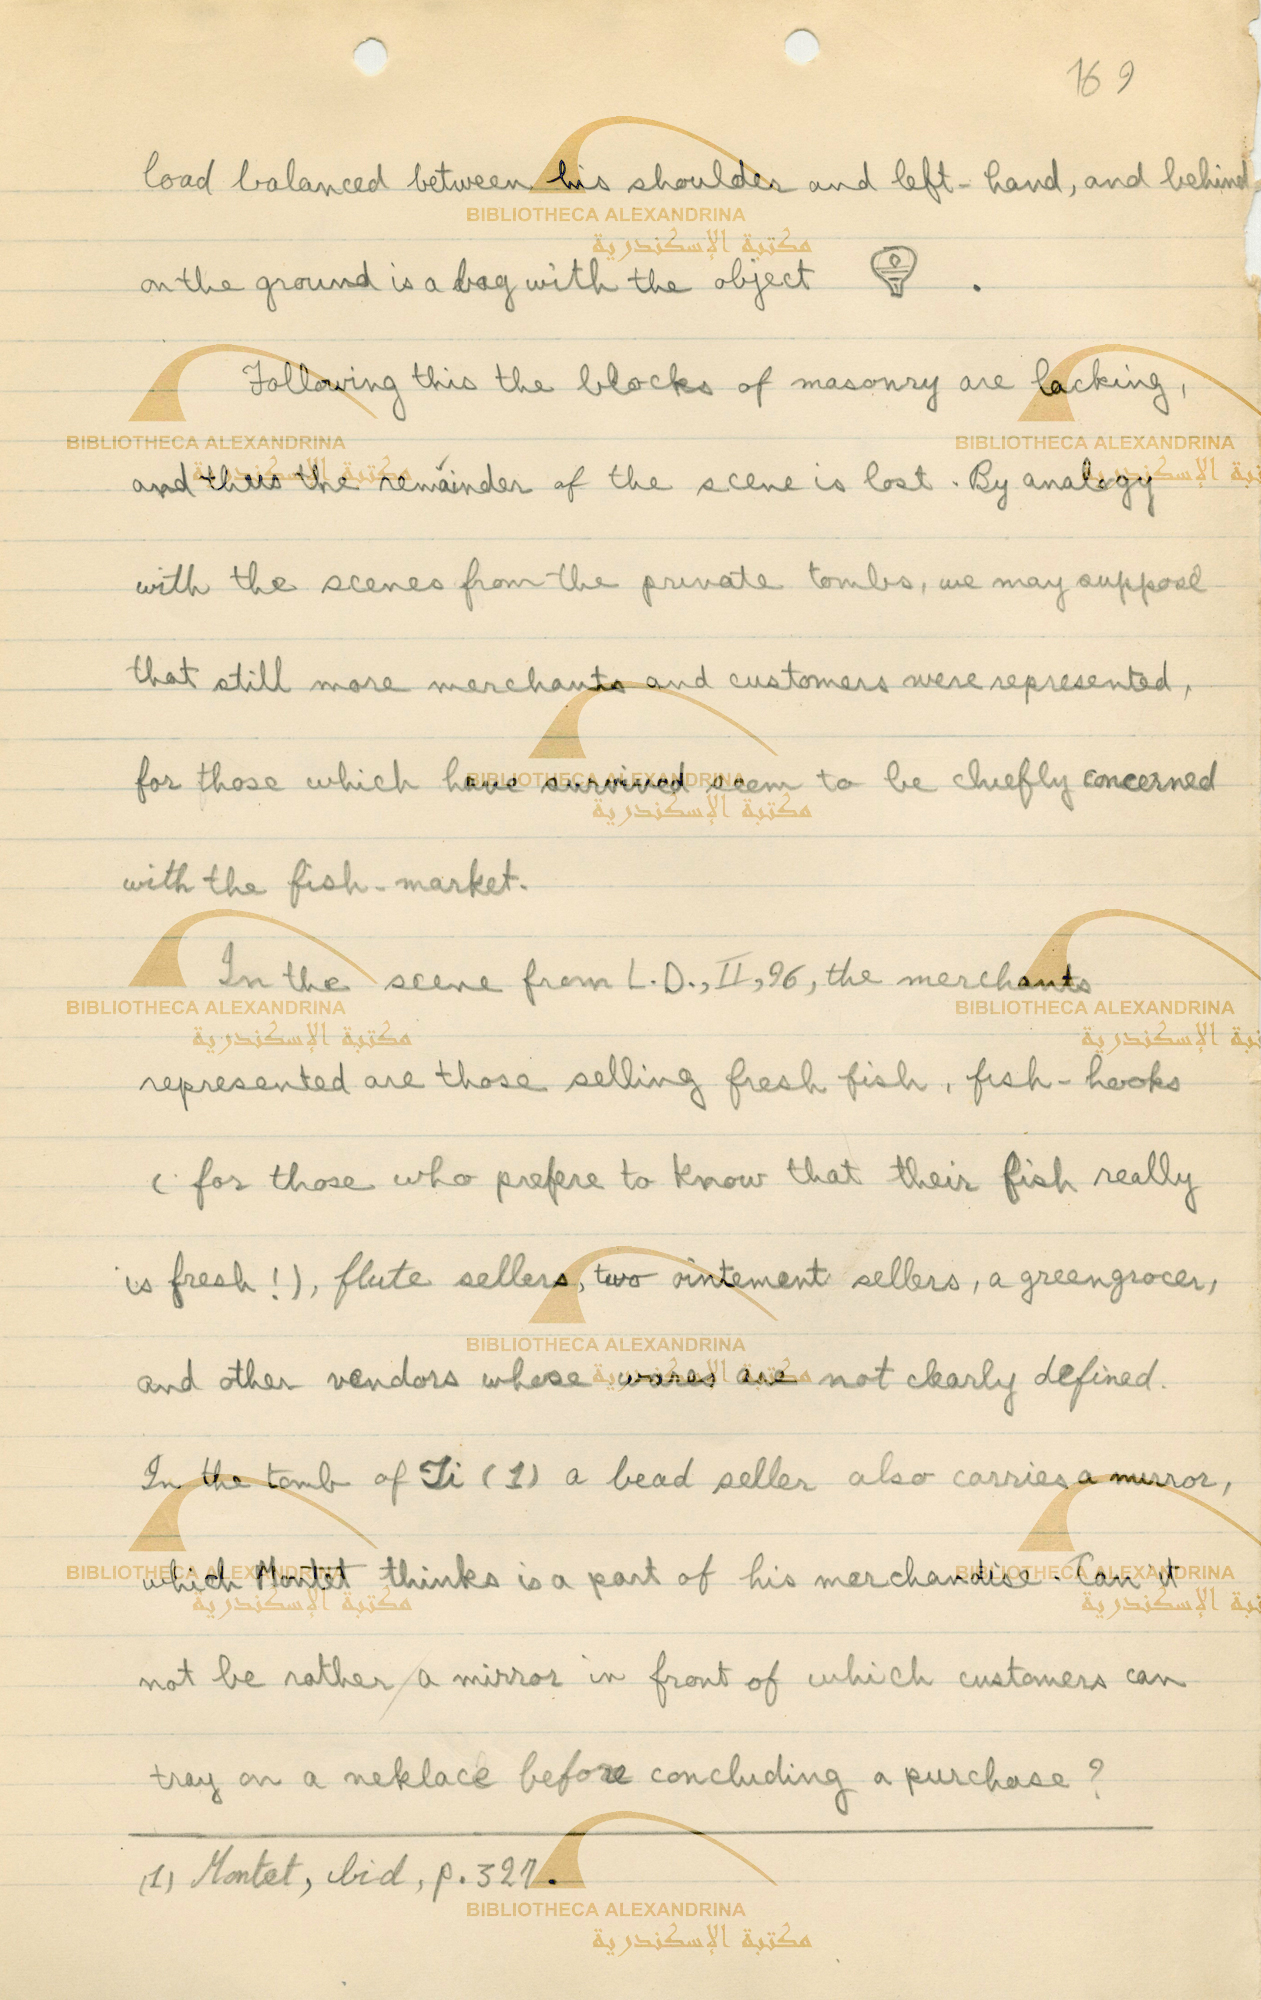 169
load balanced between his shoulder and left-hand, and behind
on the ground is a bag with the object .
Following this the blocks of masonry are lacking,
and thus the remainder of the scene is lost. By analogy
with the scenes from the private tombs, we may suppose
that still more merchants and customers were represented,
for those which have survived seem to be chiefly concerned
with the fish-market.
In the scene from L.D., II, 96, the merchants
represented are those selling fresh fish, fish-hooks
(for those who prefere to know that their fish really
is fresh!), flute sellers, two ointement sellers, a greengrocer,
and other vendors whose wares are not clearly defined.
In the tomb of Ti (1) a bead seller also carries a mirror,
which Montet thinks is a part of his merchandise. Can it
not be rather a mirror in front of which customers can
tray on a neklace before concluding a purchase?
(1) Montet, ibid, p. 327.
BIBLIOTHECA ALEXANDRINA
مكتبة الإسكندرية